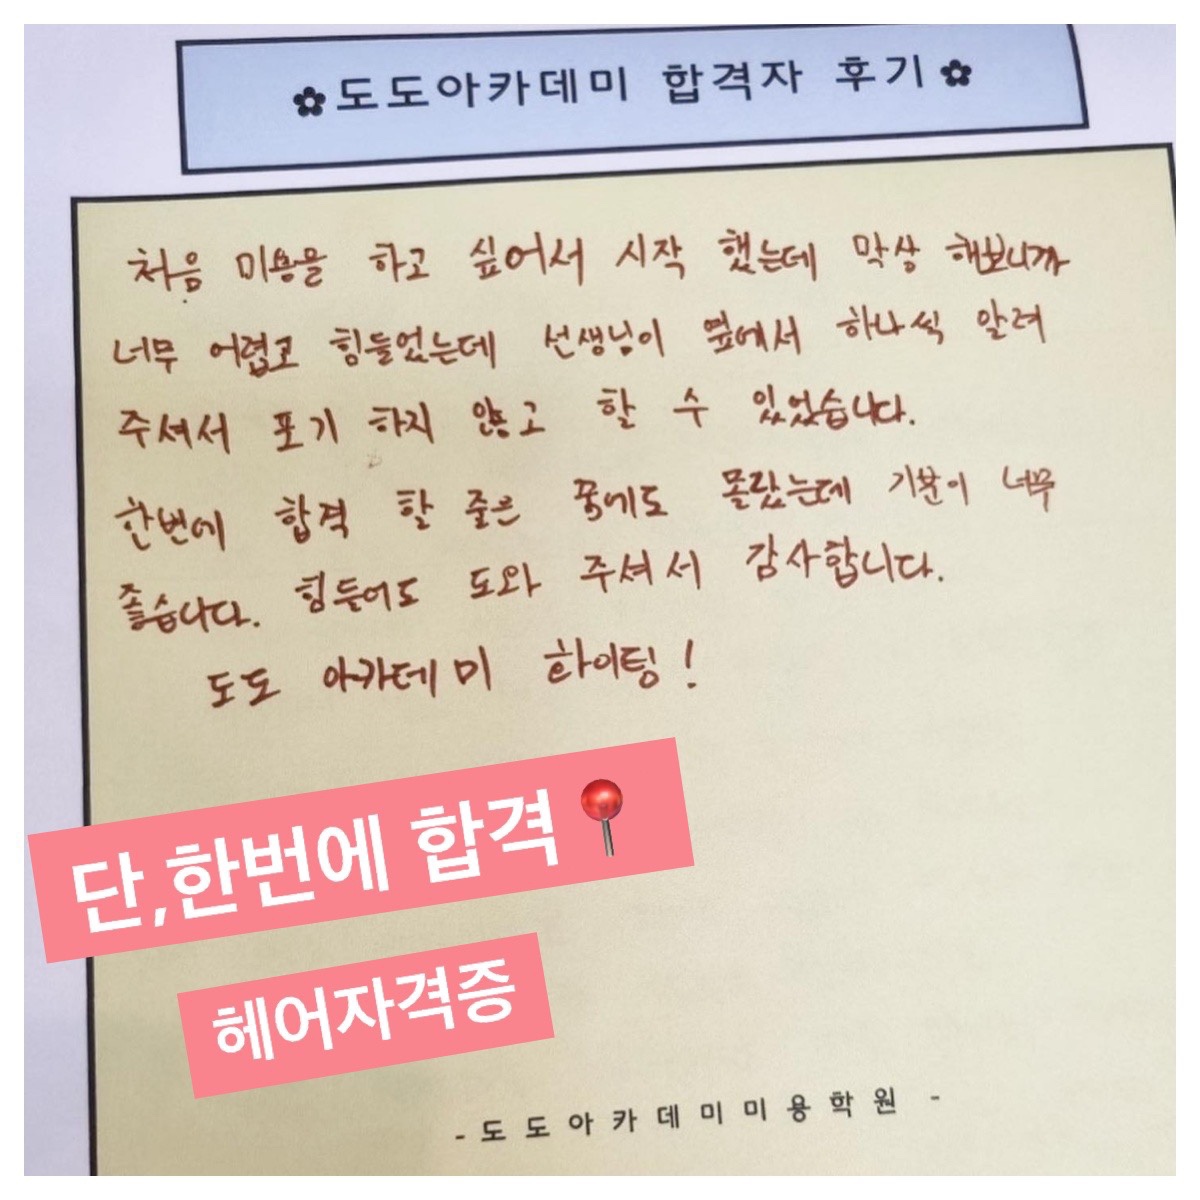 ✿도도아카데미 합격자 후기✿
처음 미용을 하고 싶어서 시작 했는데 막상 해보니까
너무 어렵고 힘들었는데 선생님이 옆에서 하나씩 알려
주셔서 포기 하지 않고 할 수 있었습니다.
한번에 합격 할 줄은 꿈에도 몰랐는데 기분이 너무
좋습니다. 힘들어도 도와 주셔서 감사합니다.
도도 아카데미 화이팅!
단,한번에 합격📍
헤어자격증
- 도도아카데미미용학원 -